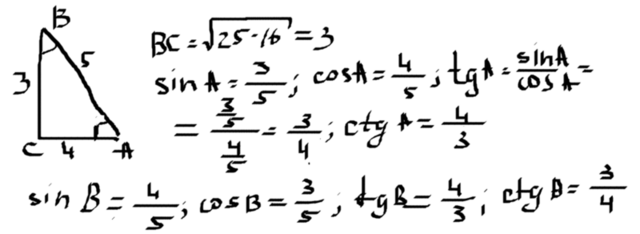 B
3
5
C 4 A
BC = √25-16 = 3
sin A = 3/5; cos A = 4/5; tg A = sin A/cos A =
= (3/5)/(4/5) = 3/4; ctg A = 4/3
sin B = 4/5; cos B = 3/5; tg B = 4/3; ctg B = 3/4